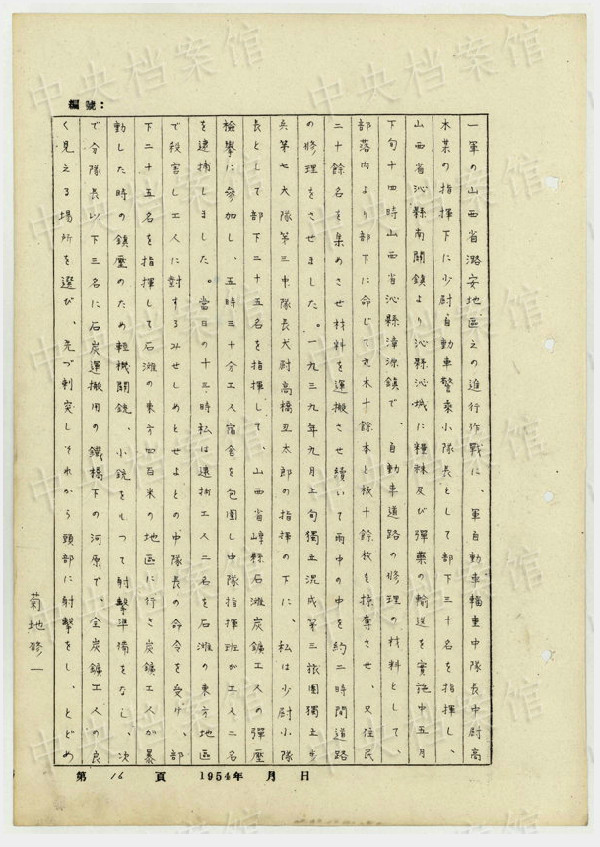 編號:
一軍の山西省潞安地区えの進行作戰に、軍自動車輜重中隊長中尉高
木某の指揮下に少尉自動車警乗小隊長として部下三十名を指揮し、
山西省沁縣南関鎮より沁縣沁城に糧秣及び彈藥の輸送を実施中五月
下旬十四時山西省沁縣漳源鎮で、自動車道路の修理の材料として、
部落内より部下に命じて丸木十餘本と板十餘枚を掠奪させ、又住民
二十餘名を集めさせ材料を運搬させ續いて雨中の中を約二時間道路
の修理をさせました。一九三九年九月上旬獨立混成第三旅團獨立步
兵第七大隊第三中隊長大尉高橋丑太郎の指揮の下に、私は少尉小隊
長として部下二十五名を指揮して、山西省崞縣石灘炭鑛工人の彈壓
檢擧に参加し、五時三十分工人宿舍を包圍し中隊指揮班が工人二名
を逮捕しました。當日の十三時私は逮捕工人二名を石灘の東方地區
で殺害し工人に對するみせしめとせよとの中隊長の命令を受け、部
下二十五名を指揮して石灘の東方四百米の地區に行き炭鑛工人が暴
動した時の鎮壓のため輕機関銃、小銃をもつて射擊準備をなし、次
で分隊長以下三名に石炭運搬用の鐵橋下の河原で、全炭鑛工人の良
く見える場所を選び、先づ刺突しそれから頭部に射擊をし、とどめ
菊地修一
第 16 頁 1954年 月 日
中央档案馆